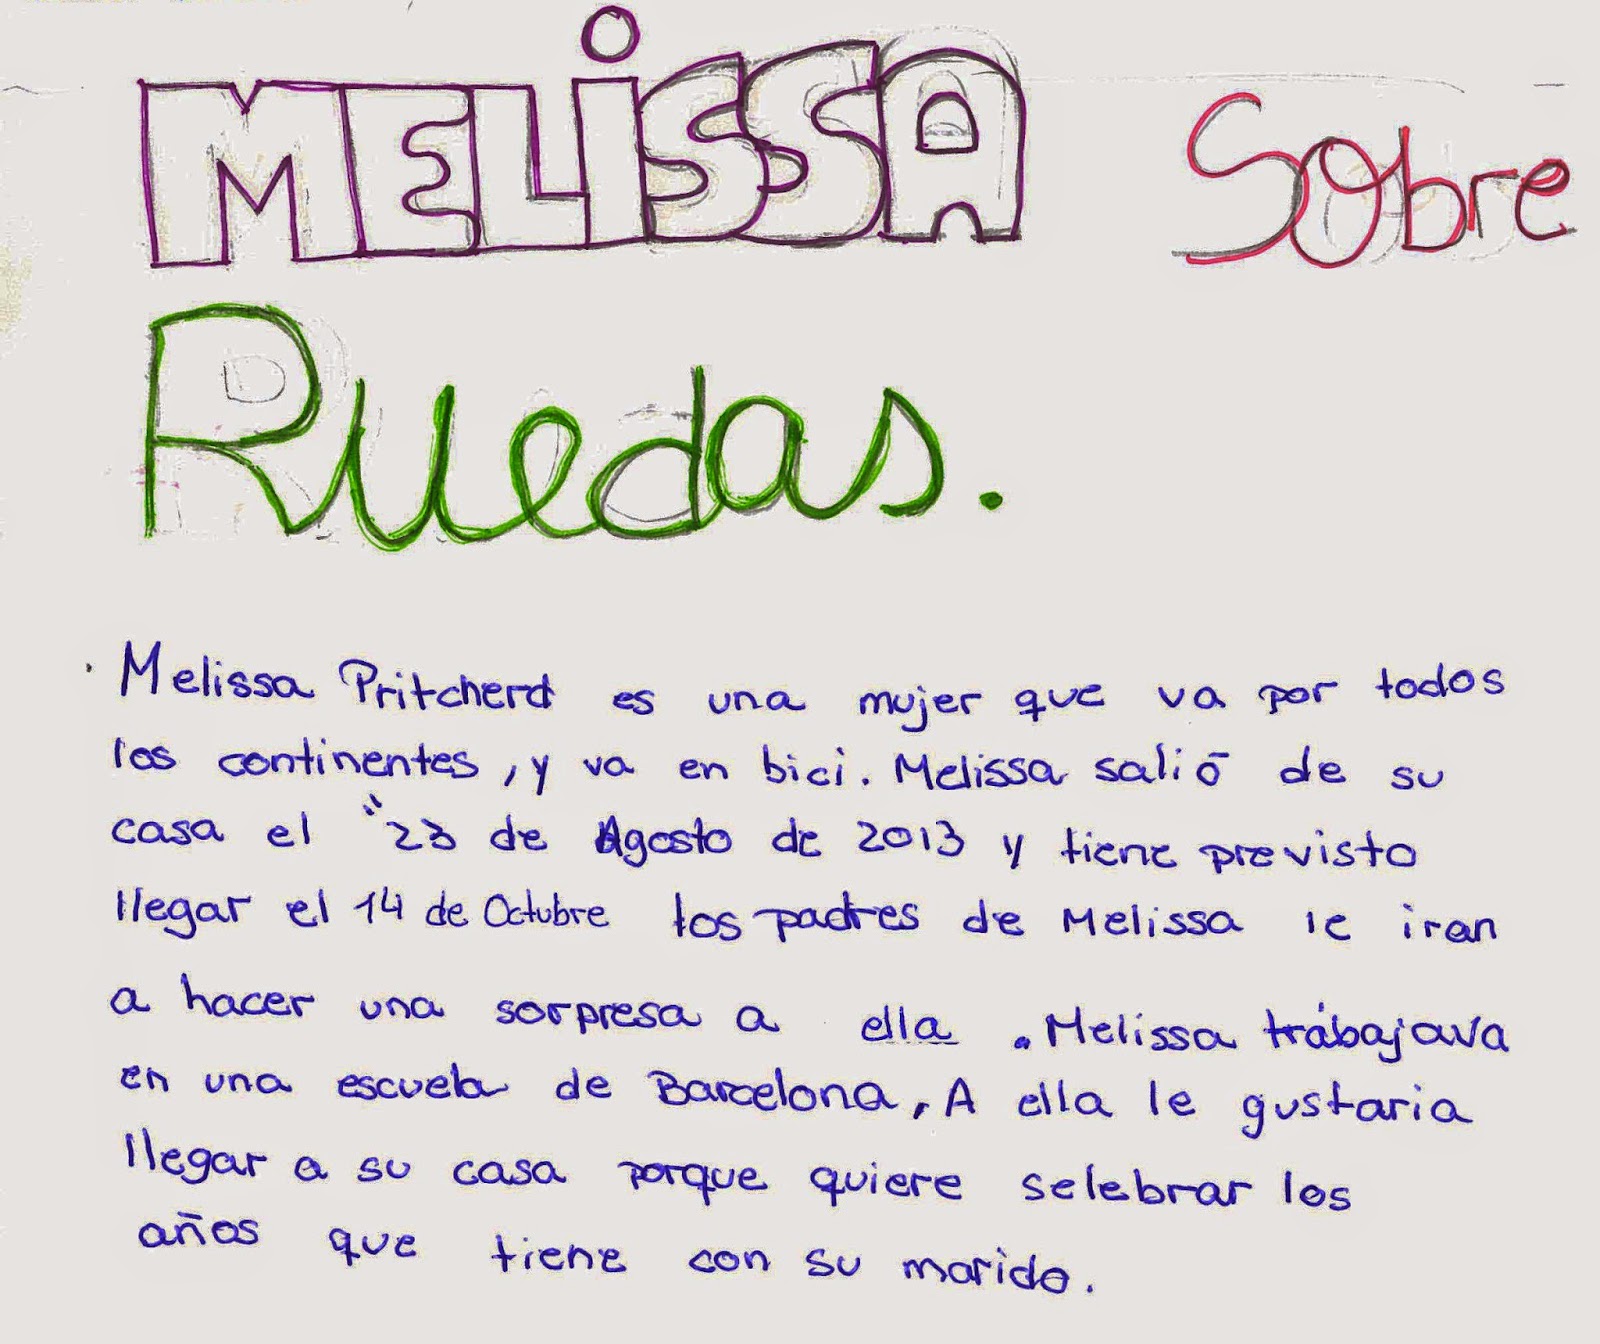 MELiSSA Sobre
Ruedas.
Melissa Pritcherd es una mujer que va por todos
los continentes, y va en bici. Melissa salió de su
casa el "23 de Agosto de 2013 y tiene previsto
llegar el 14 de Octubre los padres de Melissa le iran
a hacer una sorpresa a ella. Melissa trabajava
en una escuela de Barcelona, A ella le gustaria
llegar a su casa porque quiere selebrar los
años que tiene con su marido.